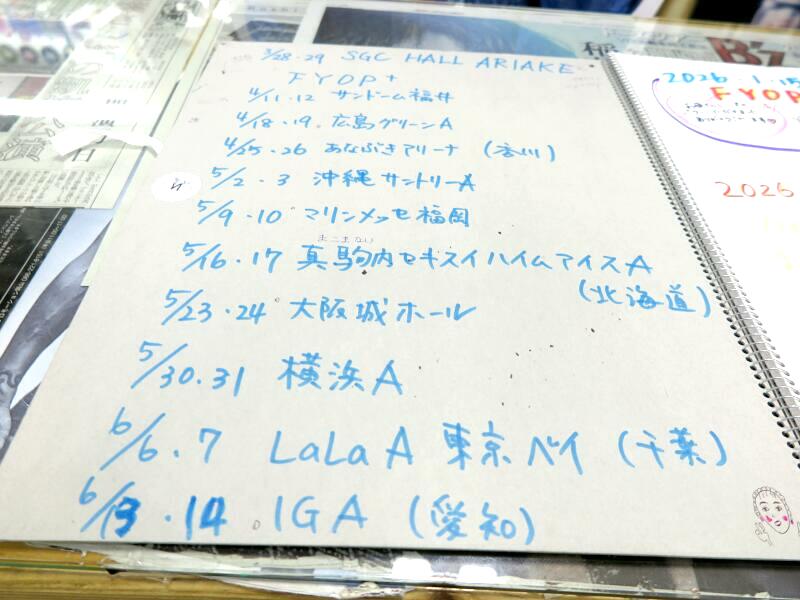 3/28・29 SGC HALL ARIAKE
FYOP+
4/11・12 サンドーム福井
4/18・19. 広島グリーンA
4/25・26 あなぶきアリーナ (香川)
5/2・3 沖縄サントリーA
5/9・10 マリンメッセ福岡
まこまない
5/16・17 真駒内セキスイハイムアイスA
(北海道)
5/23・24 大阪城ホール
5/30.31 横浜A
6/6.7 LaLa A 東京ベイ (千葉)
6/13・14 。IGA (愛知)
B'z
2026 1.15
FYOP
2026